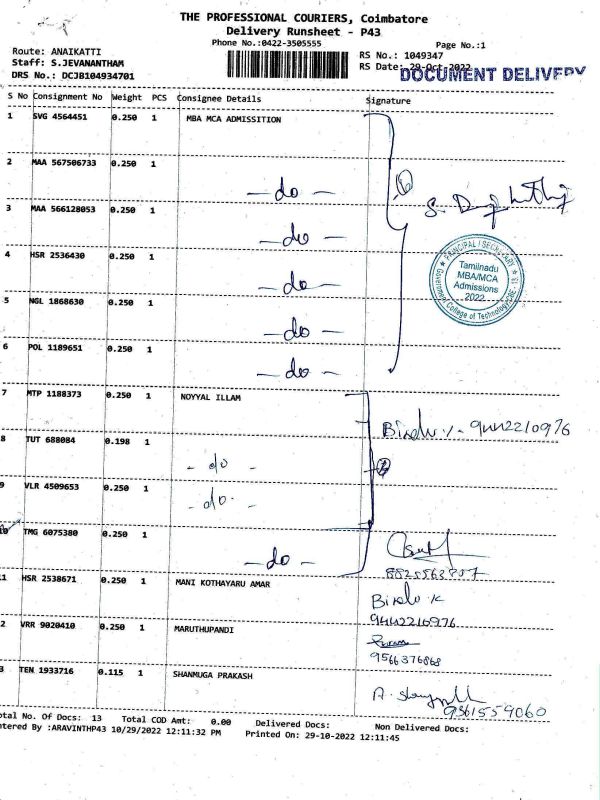 THE PROFESSIONAL COURIERS, Coimbatore
Delivery Runsheet - P43
Phone No.:0422-3505555
Page No.:1
Route: ANAIKATTI
Staff: S.JEVANANTHAM
DRS No.: DCJB104934701
RS No.: 1049347
RS Date: 29-Oct-2022
DOCUMENT DELIVERY
S No Consignment No Weight PCS Consignee Details Signature
1 SVG 4564451 0.250 1 MBA MCA ADMISSITION
2 MAA 567506733 0.250 1
- do -
3 MAA 566128053 0.250 1
- do -
4 HSR 2536430 0.250 1
- do -
5 NGL 1868630 0.250 1
- do -
6 POL 1189651 0.250 1
- do -
PRINCIPAL / SECRETARY
Tamilnadu
MBA/MCA
Admissions
2022
Government College of Technology, CBE - 13.
7 MTP 1188373 0.250 1 NOYYAL ILLAM
9442210976
8 TUT 688084 0.198 1
- do -
9 VLR 4509653 0.250 1
- do -
10 TMG 6075380 0.250 1
- do -
1 HSR 2538671 0.250 1 MANI KOTHAYARU AMAR
9442210976
2 VRR 9020410 0.250 1 MARUTHUPANDI
9566376868
3 TEN 1933716 0.115 1 SHANMUGA PRAKASH
otal No. Of Docs: 13 Total COD Amt: 0.00 Delivered Docs: Non Delivered Docs:
ntered By :ARAVINTHP43 10/29/2022 12:11:32 PM Printed On: 29-10-2022 12:11:45